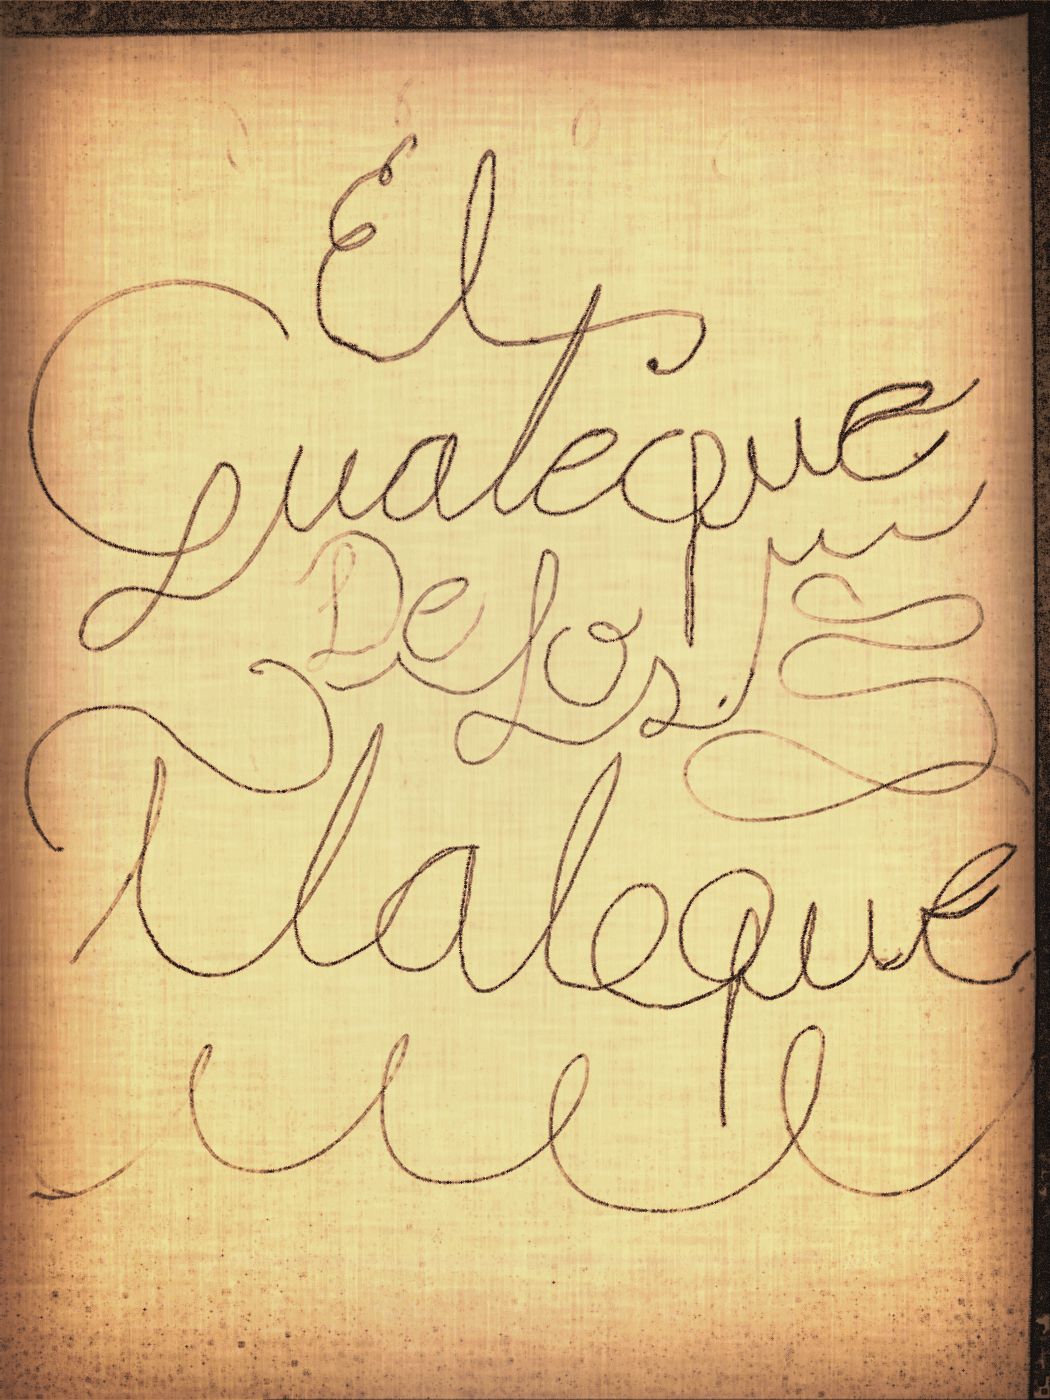 El
Guateque
De Los
Tlateque